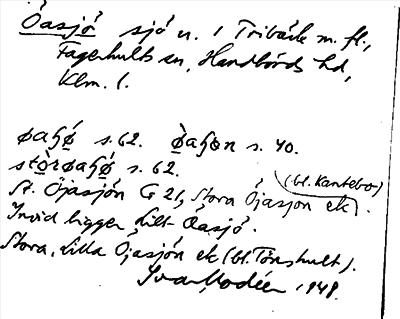 Öasjö sjö n. 1 Tribäck m. fl.,
Fagerhults sn, Handbörds hd,
Klm. l.
øaɧö s. 62. øaɧøn s. 40.
stòrøaɧö s. 62.
St. Öjasjön G 21, Stora Öjasjon ek (bl. Kantebo).
Invid ligger Lilt- Öasjö.
Stora, Lilla Öjasjön ek (bl. Tönshult).
Ivar Modéer 1949.